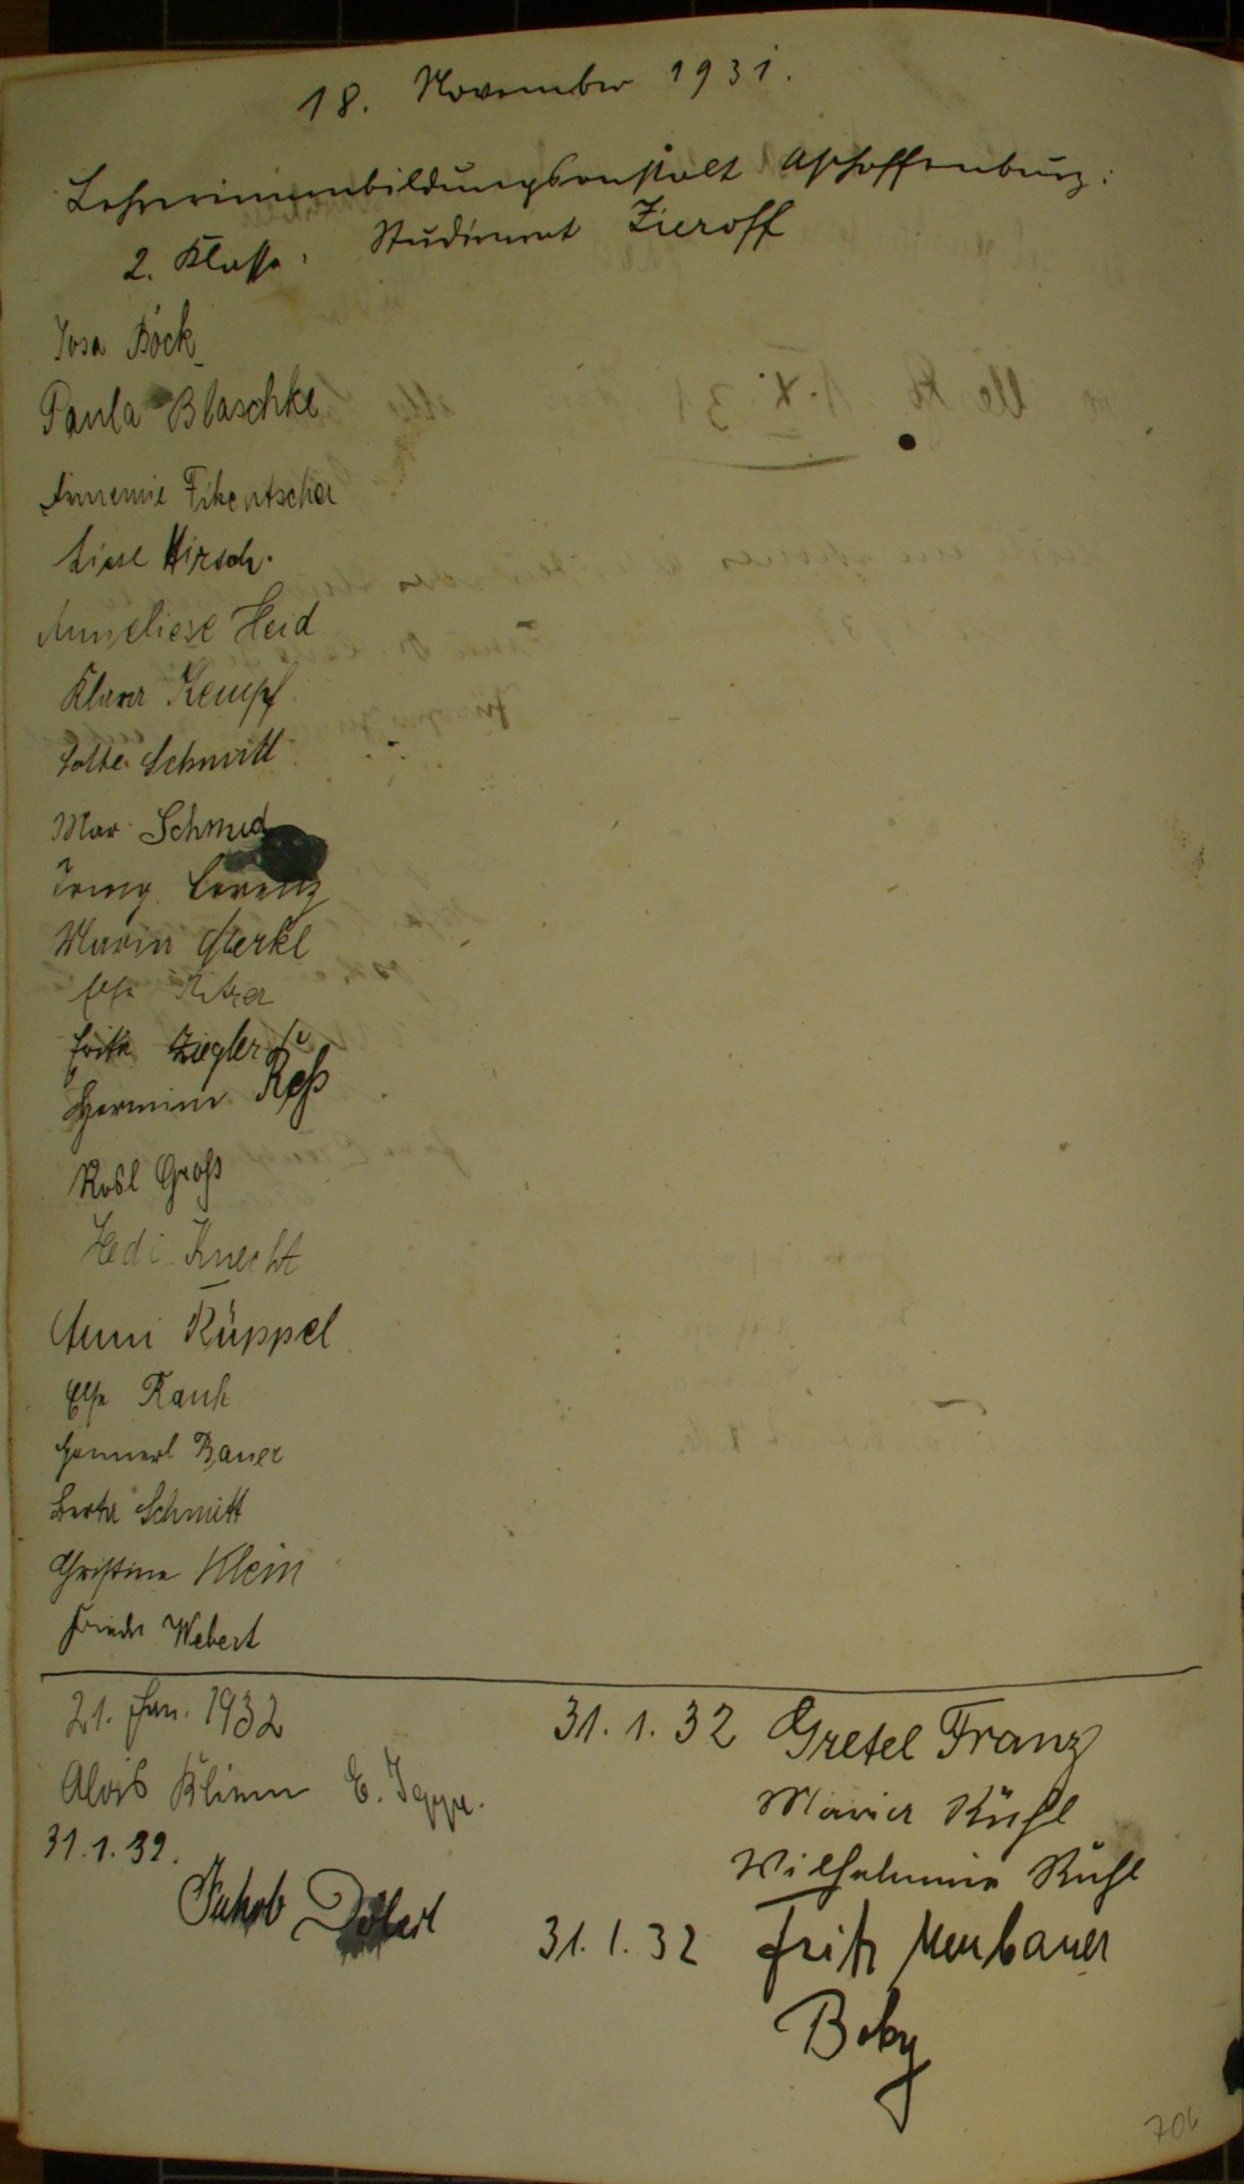 18. November 1931.
Lehrerinnenbildungsanstalt Aschaffenburg:
2. Klasse: Studienrat Zieroff
Rosa Böck
Paula Blaschke
Annemie Fikentscher
Liesl Hirsch.
Anneliese Heid
Klara Kempf
Lotte Schmitt
Mar. Schmid
Irmg. Lorenz
Maria Merkl
Else
Erika Ziegler
Hermine Reß
Rosl Groß
Hedi Knecht
Anni Rüppel
Else Rauh
Hannerl Bauer
Berta Schmitt
Christine Klein
Frieda Webert
21. Jan. 1932
Alois Klimm E.
31.1.32.
Jakob
31.1.32 Gretel Franz
Maria Rühl
Wilhelmine Rühl
31.1.32 Fritz Neubauer
Boby
706